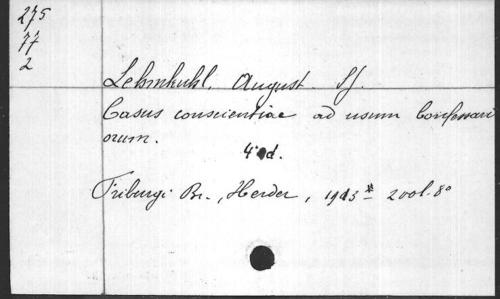 275
77
2
Lehmkuhl, August. SJ.
Casus conscientiae ad usum Confessari
orum.
4 ed.
Friburgi Br., Herder, 1913 2 vol. 8°